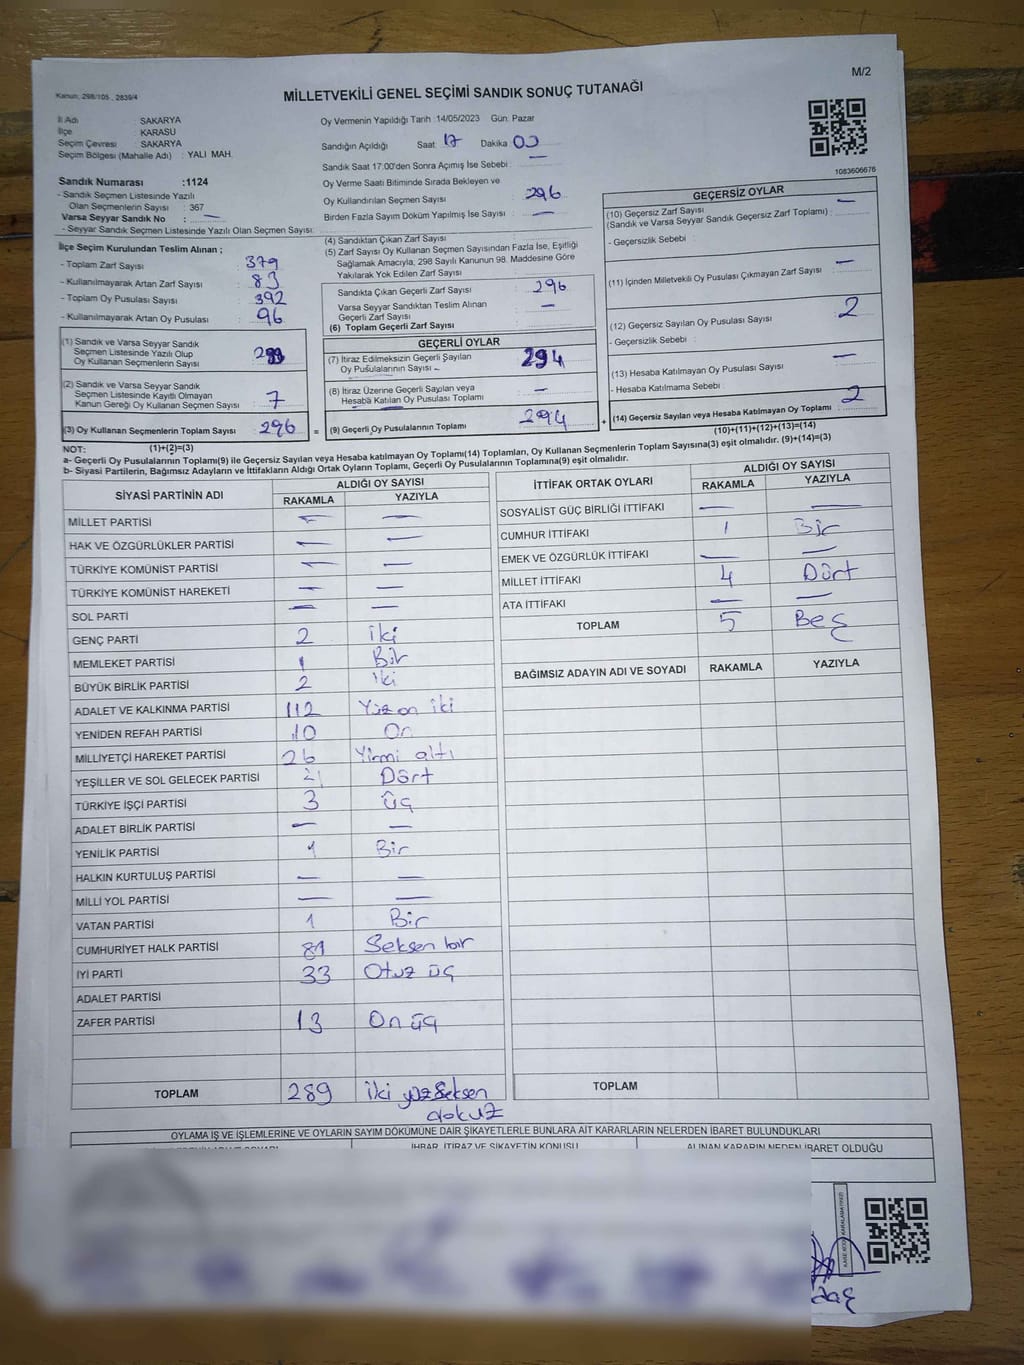 M/2
Kanun, 298/105 , 2839/4
MİLLETVEKİLİ GENEL SEÇİMİ SANDIK SONUÇ TUTANAĞI
İl Adı SAKARYA
İlçe KARASU
Seçim Çevresi : SAKARYA
Seçim Bölgesi (Mahalle Adı) : YALI MAH.
Oy Vermenin Yapıldığı Tarih :14/05/2023 Gün: Pazar
Sandığın Açıldığı Saat 17 Dakika 00
Sandık Saat 17:00'den Sonra Açımış İse Sebebi : —
Oy Verme Saati Bitiminde Sırada Bekleyen ve
Oy Kullandırılan Seçmen Sayısı 296
Birden Fazla Sayım Döküm Yapılmış İse Sayısı —
1083606676
Sandık Numarası :1124
- Sandık Seçmen Listesinde Yazılı
Olan Seçmenlerin Sayısı : 367
Varsa Seyyar Sandık No : —
- Seyyar Sandık Seçmen Listesinde Yazılı Olan Seçmen Sayısı:
İlçe Seçim Kurulundan Teslim Alınan ;
- Toplam Zarf Sayısı : 379
- Kullanılmayarak Artan Zarf Sayısı : 83
- Toplam Oy Pusulası Sayısı : 392
- Kullanılmayarak Artan Oy Pusulası : 96
(1) Sandık ve Varsa Seyyar Sandık
Seçmen Listesinde Yazılı Olup
Oy Kullanan Seçmenlerin Sayısı
(2) Sandık ve Varsa Seyyar Sandık
Seçmen Listesinde Kayıtlı Olmayan
Kanun Gereği Oy Kullanan Seçmen Sayısı : 7
(3) Oy Kullanan Seçmenlerin Toplam Sayısı 296 =
(4) Sandıktan Çıkan Zarf Sayısı
(5) Zarf Sayısı Oy Kullanan Seçmen Sayısından Fazla İse, Eşitliği
Sağlamak Amacıyla, 298 Sayılı Kanunun 98. Maddesine Göre
Yakılarak Yok Edilen Zarf Sayısı
Sandıkta Çıkan Geçerli Zarf Sayısı : 296
Varsa Seyyar Sandıktan Teslim Alınan
Geçerli Zarf Sayısı : —
(6) Toplam Geçerli Zarf Sayısı
GEÇERLİ OYLAR
(7) İtiraz Edilmeksizin Geçerli Sayılan
Oy Pusulalarının Sayısı 294
(8) İtiraz Üzerine Geçerli Sayılan veya
Hesaba Katılan Oy Pusulası Toplamı —
(9) Geçerli Oy Pusulalarının Toplamı 294 +
GEÇERSİZ OYLAR
(10) Geçersiz Zarf Sayısı —
(Sandık ve Varsa Seyyar Sandık Geçersiz Zarf Toplamı) :
- Geçersizlik Sebebi :
(11) İçinden Milletvekili Oy Pusulası Çıkmayan Zarf Sayısı —
(12) Geçersiz Sayılan Oy Pusulası Sayısı : 2
- Geçersizlik Sebebi :
(13) Hesaba Katılmayan Oy Pusulası Sayısı —
- Hesaba Katılmama Sebebi :
(14) Geçersiz Sayılan veya Hesaba Katılmayan Oy Toplamı : 2
(10)+(11)+(12)+(13)=(14)
NOT: (1)+(2)=(3)
a- Geçerli Oy Pusulalarının Toplamı(9) ile Geçersiz Sayılan veya Hesaba katılmayan Oy Toplamı(14) Toplamları, Oy Kullanan Seçmenlerin Toplam Sayısına(3) eşit olmalıdır. (9)+(14)=(3)
b- Siyasi Partilerin, Bağımsız Adayların ve İttifakların Aldığı Ortak Oyların Toplamı, Geçerli Oy Pusulalarının Toplamına(9) eşit olmalıdır.
SİYASİ PARTİNİN ADI ALDIĞI OY SAYISI
RAKAMLA YAZIYLA
MİLLET PARTİSİ — —
HAK VE ÖZGÜRLÜKLER PARTİSİ — —
TÜRKİYE KOMÜNİST PARTİSİ — —
TÜRKİYE KOMÜNİST HAREKETİ — —
SOL PARTİ — —
GENÇ PARTİ 2 iki
MEMLEKET PARTİSİ 1 Bir
BÜYÜK BİRLİK PARTİSİ 2 iki
ADALET VE KALKINMA PARTİSİ 112 Yüz on iki
YENİDEN REFAH PARTİSİ 10 On
MİLLİYETÇİ HAREKET PARTİSİ 26 Yirmi altı
YEŞİLLER VE SOL GELECEK PARTİSİ Dört
TÜRKİYE İŞÇİ PARTİSİ 3 üç
ADALET BİRLİK PARTİSİ — —
YENİLİK PARTİSİ 1 Bir
HALKIN KURTULUŞ PARTİSİ — —
MİLLİ YOL PARTİSİ — —
VATAN PARTİSİ 1 Bir
CUMHURİYET HALK PARTİSİ 81 Seksen bir
İYİ PARTİ 33 Otuz üç
ADALET PARTİSİ
ZAFER PARTİSİ 13 On üç
TOPLAM 289 iki yüz seksen
dokuz
İTTİFAK ORTAK OYLARI ALDIĞI OY SAYISI
RAKAMLA YAZIYLA
SOSYALİST GÜÇ BİRLİĞİ İTTİFAKI — —
CUMHUR İTTİFAKI 1 Bir
EMEK VE ÖZGÜRLÜK İTTİFAKI — —
MİLLET İTTİFAKI 4 Dört
ATA İTTİFAKI — —
TOPLAM 5 Beş
BAĞIMSIZ ADAYIN ADI VE SOYADI RAKAMLA YAZIYLA
TOPLAM
OYLAMA İŞ VE İŞLEMLERİNE VE OYLARIN SAYIM DÖKÜMÜNE DAİR ŞİKAYETLERLE BUNLARA AİT KARARLARIN NELERDEN İBARET BULUNDUKLARI
İHBAR, İTİRAZ VE ŞİKAYETİN KONUSU ALINAN KARARIN NEDEN İBARET OLDUĞU